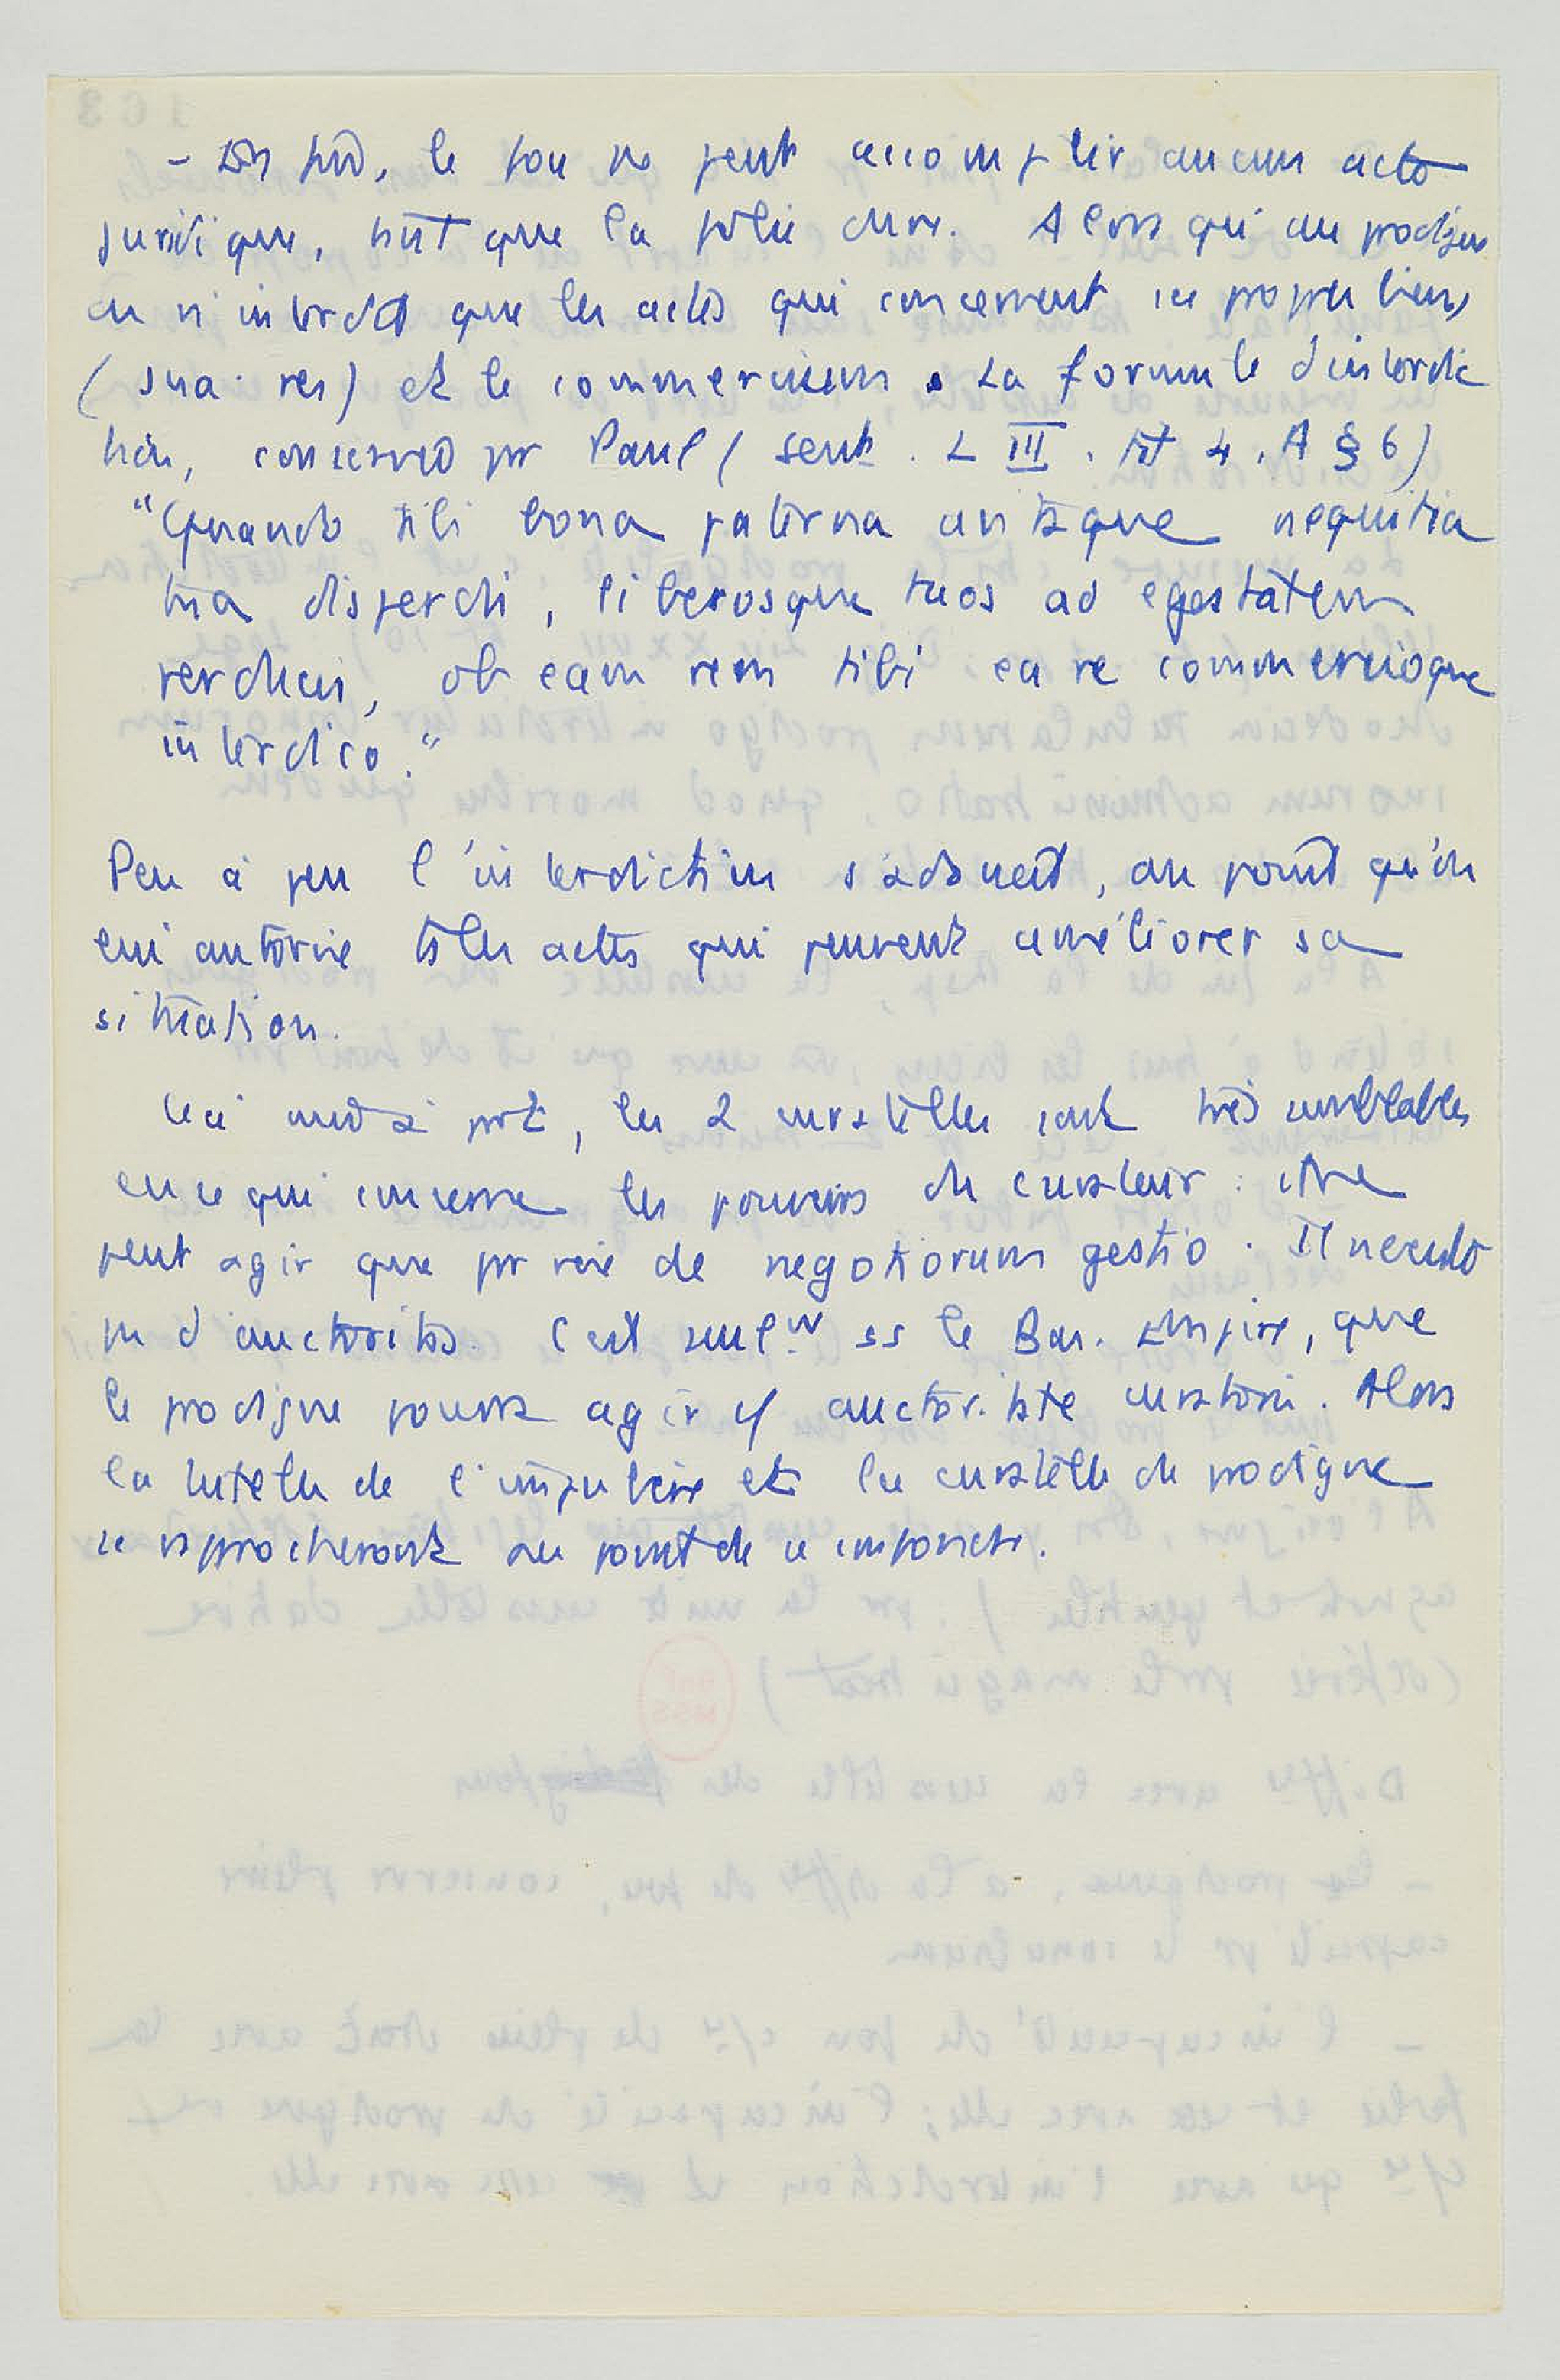 - Enfin, le fou ne peut accomplir aucun acte
juridique, tant que la folie dure. Alors qu'au prodigue
on n'interdit que les actes qui concernent ses propres biens
(sua res) et le commercium. La formule d'interdic
tion, conservée par Paul (Sent. L III. tit 4. A § 6)
"Quando tibi bona paterna avitaque nequitia
tua disperdis, liberosque tuos ad egestatem
perducis, ob eam rem tibi ea re commercioque
interdico."
Peu à peu l'interdiction s'adoucit, au point qu'on
lui autorise ts les actes qui peuvent améliorer sa
situation.
Ceci mis à part, les 2 curatelles sont très semblables
en ce qui concerne les pouvoirs du curateur : il ne
peut agir que par voie de negotiorum gestio. Il ne
pas d'auctoritas. C'est seulnt ss le Bas. Empire, que
le prodigue pourra agir auctoritate curatoris. Alors
la tutelle de l'impubère et la curatelle du prodigue
se rapprocheront au point de se